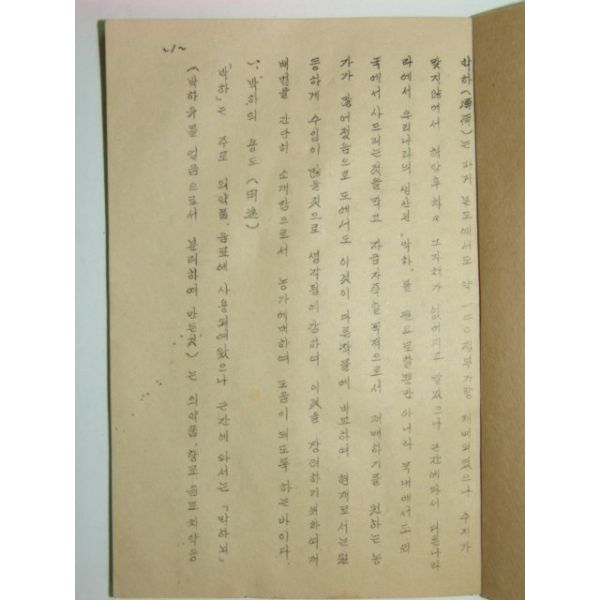 박하(薄荷)는 과거 본도에서도 약 一五〇정부가량 재배되었으나 수지가
맞지않어서 해방후하야 그자취가 없어지고 말았으나 근간에와서 다른나라
에서 우리나라의 생산된 「박하」를 필요로할뿐만아니라 국내에서도 외
국에서 사드리는것을막고 자급자족을목적으로서 재배하기를 원하는농
가가 많어졌음으로 도에서도 이것이 다른작물에 비교하여 현재로서는월
등하게 수입이 많을것으로 생각됨에 감하여 이것을 장려하기위하여재
배법을 간단히 소개함으로서 농가에대하여 도움이 되도록 하는바이다.
1. 박하의 용도(用途)
「박하」는 주로 의약품、음료에 사용되여왔으나 근간에 와서는 「박하뇌」
(박하유를 얼음으로서 분리하여 만든것)는 의약품、향료 음료 치약등
~1~